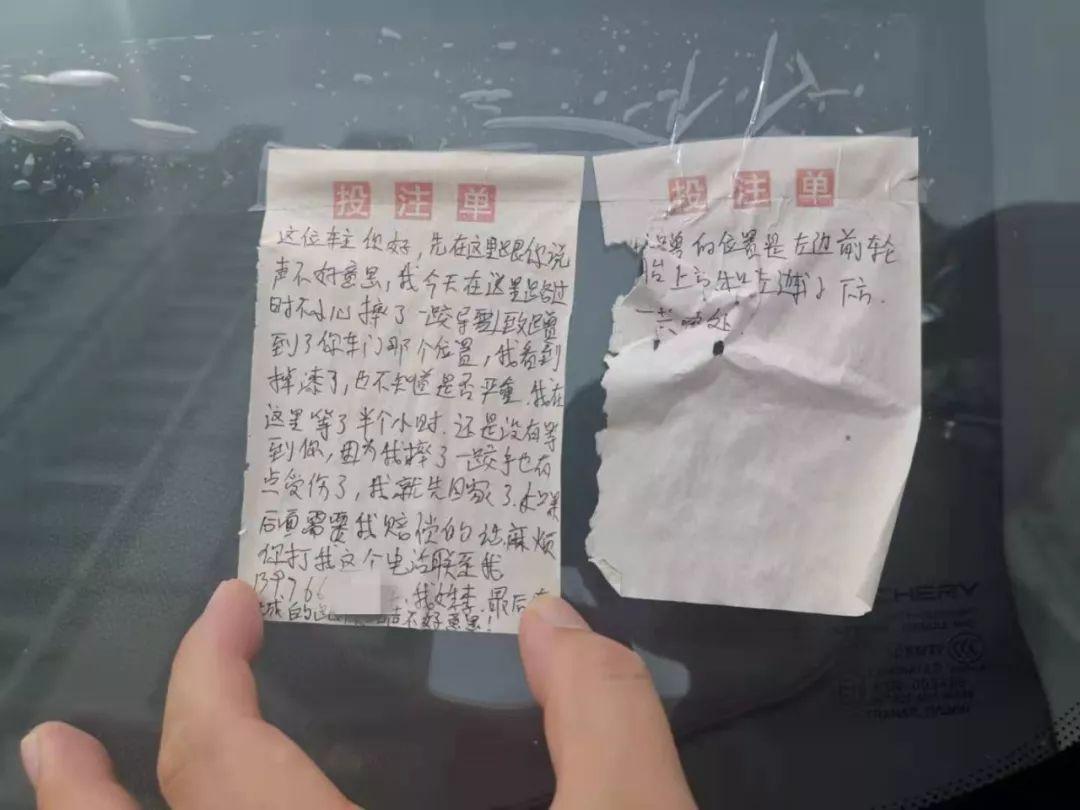 投注单
这位车主你好，先在这里跟你说
声不好意思，我今天在这里路过
时不小心摔了一跤导致
到了你车门那个位置，我看到
掉漆了，也不知道是否严重.我在
这里等了半个小时.还是没有等
到你，因为我摔了一跤手也有
点受伤了，我就先回家了.如果
后面需要我赔偿的话麻烦
你打我这个电话联系我
139766
，我姓李.最后
声不好意思！
投注单
的位置是左边前轮
胎上方
一点点处.
CHERY
CCC